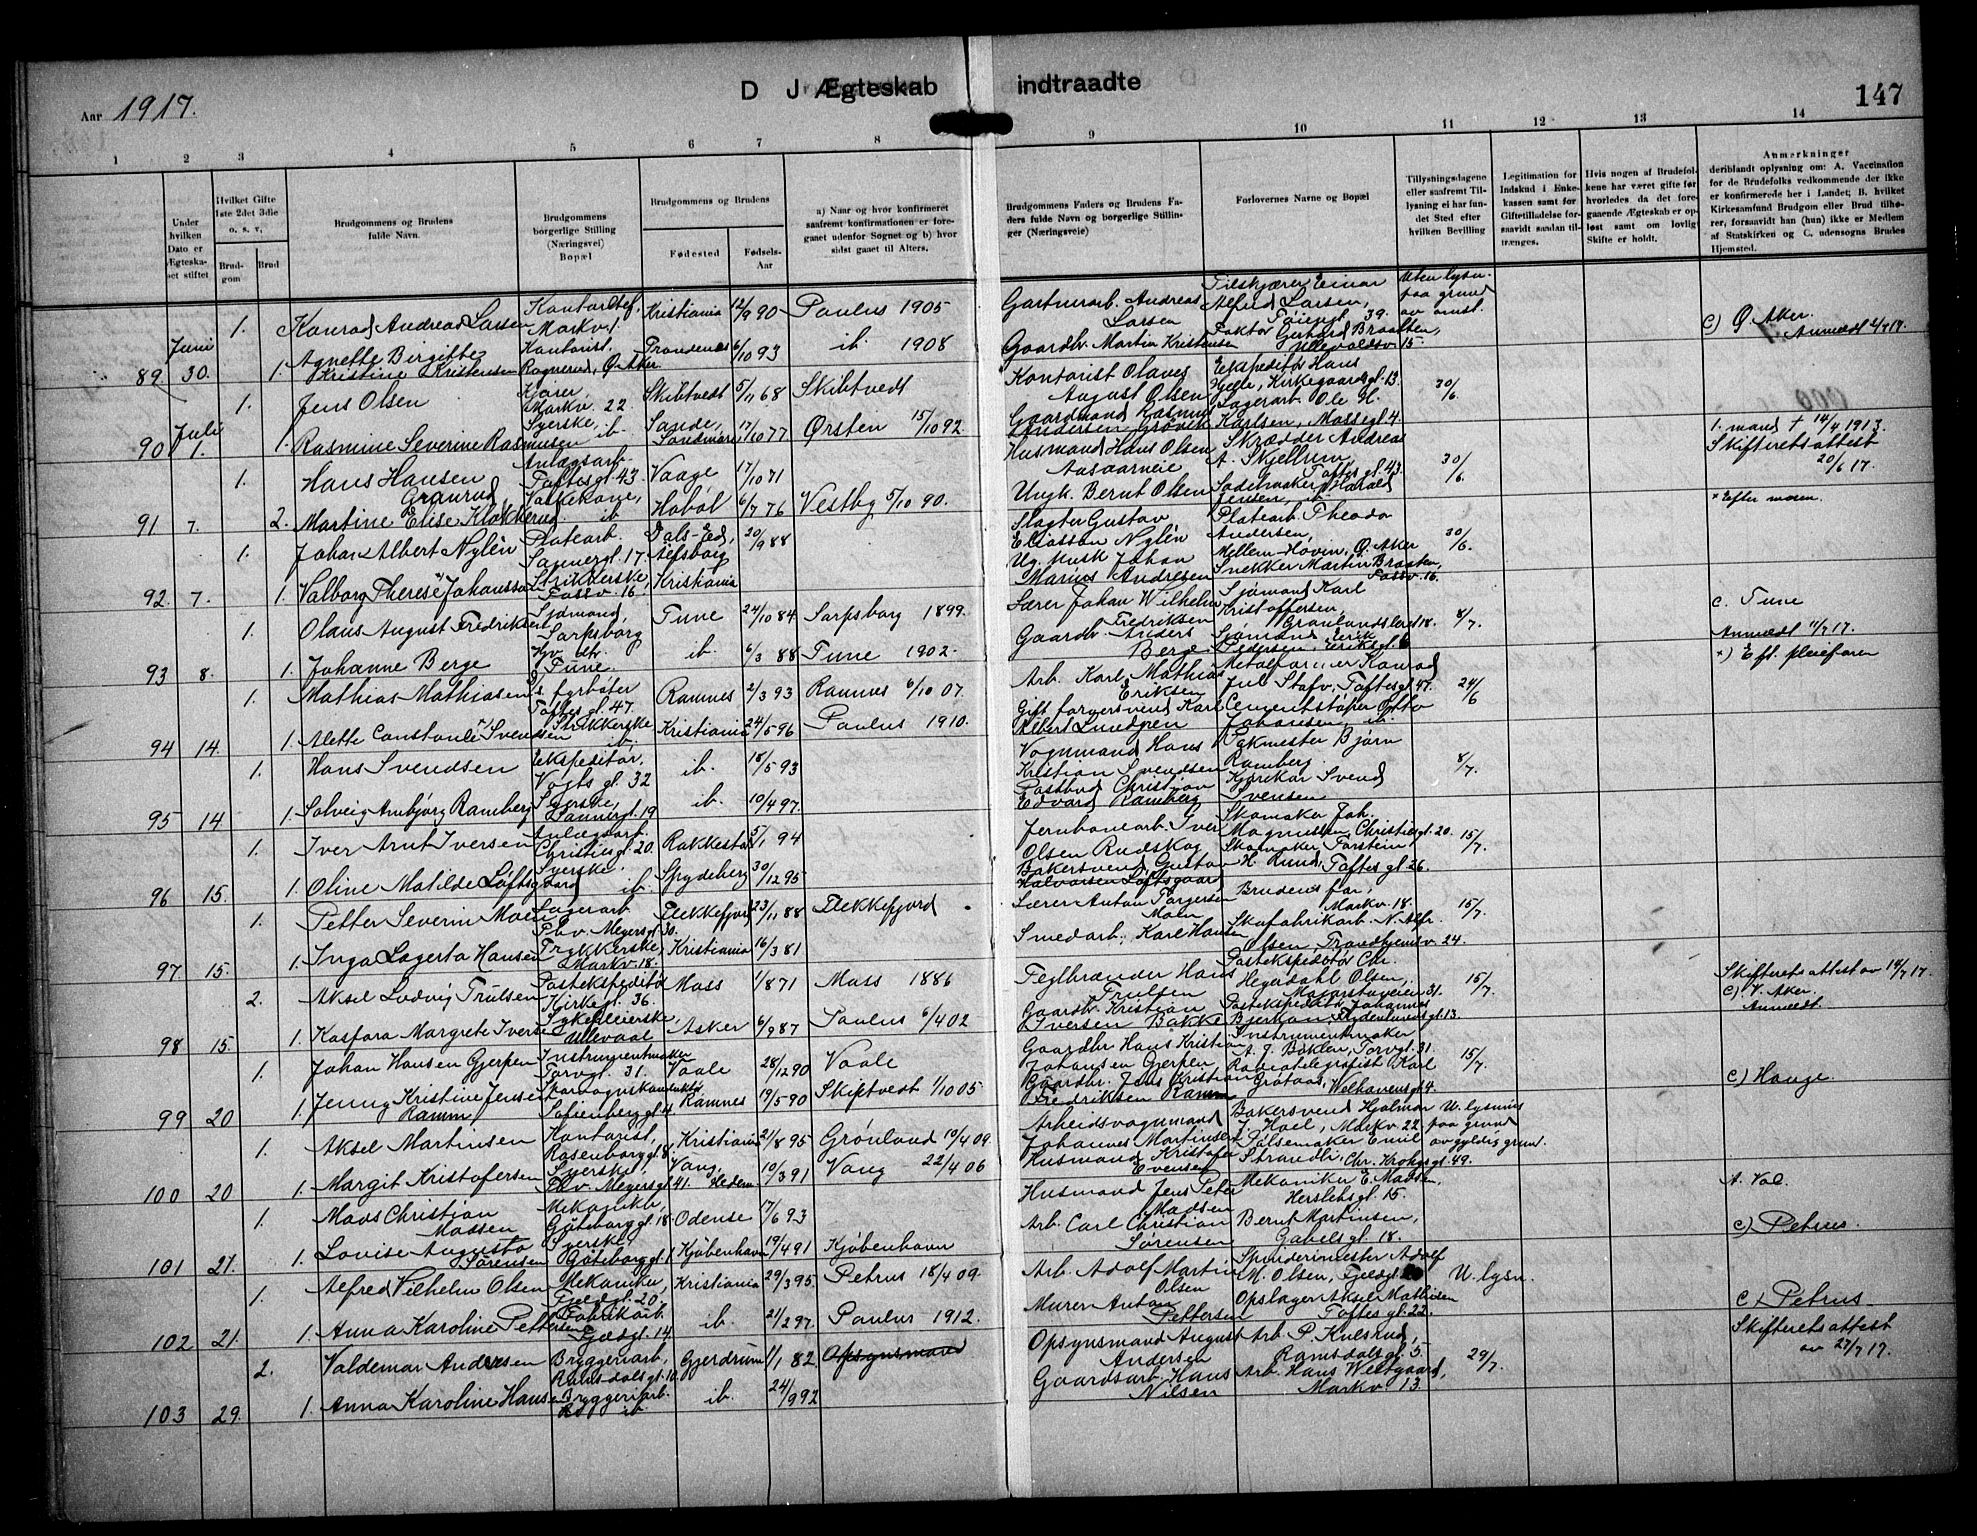 D J Ægteskab indtraadte
147
Aar 1917.
1 2 3 4 5 6 7 8 9 10 11 12 13 14
Under hvilken Dato er Ægteskabet stiftet
Hvilket Gifte 1ste 2det 3die o. s. v.
Brudgom
Brud
Brudgommens og Brudens fulde Navn.
Brudgommens borgerlige Stilling (Næringsvei) Bopæl
Brudgommens og Brudens
Fødested
Fødsels-Aar
a) Naar og hvor konfirmeret saafremt konfirmationen er foregaaet udenfor Sognet og b) hvor sidst gaaet til Alters.
Brudgommens Faders og Brudens Faders fulde Navn og borgerlige Stillinger (Næringsveie)
Forlovernes Navne og Bopæl
Tillysningsdagene eller saafremt Tillysning ei har fundet Sted efter hvilken Bevilling
Legitimation for Indskud i Enkekassen samt for Giftetilladelse forsaavidt saadan tiltrænges.
Hvis nogen af Brudefolkene har været gifte før hvorledes da det foregaaende Ægteskab er opløst samt om lovlig Skifte er holdt.
Anmerkninger
deriblandt oplysning om: A. Vaccination for de Brudefolks vedkommende der ikke er konfirmerede her i Landet; B. hvilket Kirkesamfund Brudgom eller Brud tilhører, forsaavidt han (hun) ikke er Medlem af Statskirken og C. udensogns Brudes Hjemsted.
1. Konrad Andreas Larsen Markv. 1. Kristiania 12/9 90 Paulus 1905 Gartnerarb. Andreas Larsen Alfred Larsen, Tøiengt. 39. Uten lysn. paa grund av amst.
89 Juni 30. 1. Agnette Birgitte Kristine Kristensen Kontorist, Ragnerud, Ø. Aker. Trondenes 6/10 93 ib. 1908 Gaardbr. Martin Kristensen Faktor Gerhard Braathen, Ullevoldsv. 15. C) Ø. Aker. Anmeldt 2/7 17.
1. Jens Olsen Kjører, Markv. 22 Skibtvedt 5/11 68 Skibtvedt Kontorist Olaves August Olsen Ekspeditør Hans Hjelle, Kirkegaardsgt. 13. 30/6.
90 Juli 1. 1. Rasmine Severine Rasmusen Syerske, ib. Sande, Søndmøre 17/10 77 Ørsten 15/10 92. Gaardmand Rasmus Andersen Grøvik Lagerarb. Ole H. Karlsen, Mossegt. 4. 1. mand † 14/4 1913. Skifteretsattest 20/6 17.
1. Hans Hansen Granrud Anlægsarb. Toftesgt. 43 Vaage 17/10 71 Husmand Hans Olsen Aasaarneie Skrædder Andreas A. Skjellrum, Toftesgt. 43. 30/6.
91 7. 2. Martine Elise Klokkerud Vaskekone, ib. Hobøl 6/7 76 Vestby 5/10 90. Ungk. Bernt Olsen Sadelmaker Harald Jensen, ib. × Efter moren.
1. Johan Albert Nylén Platearb. Sannergt. 17. Dals-Ed, Aelfsborg 20/9 88 Slagter Gustav Eliasson Nylén Platearb. Theodor Andersen, Mellem-Hovin, Ø. Aker 30/6.
92. 7. 1. Valborg Therese Johansson Strikkerske, Fossv. 16. Kristiania Ug. Musk Johan Marius Andresen Snekker Martin Braaten, Fossv. 16.
1. Olaus August Fredriksen Sjømand, Sarpsborg Tune 24/10 84 Sarpsborg 1899. Lærer Johan Wilhelm Fredriksen Sjømand Karl Kristoffersen, Grønlandsleret 18. 8/7. C. Tune
93 8. 1. Johanne Berge Tune. ib. 6/3 88 Tune 1902. Gaardbr. Anders Berge Sjømand Erik Pedersen, Eriksgt. 6 Anmeldt 11/7 17.
1. Mathias Mathiasen fyrbøter Toftesgt. 47. Ramnes 2/3 93 Ramnes 6/10 07. Arb. Karl Mathias Eriksen Metalformer Konrad Jul. Stafv. Toftesgt. 47. 24/6 ×) Eft. pleiefaren
94 14. 1. Alette Constance Svendsen Strikkerske ib. Kristiania 24/5 96 Paulus 1910. Gift farversvend Karl Albert Lundgren Cementstøper Otto Johansen, ib.
1. Hans Svendsen Ekspeditør, Vogts gt. 32 ib. 18/5 93 Vognmand Hans Kristian Svendsen Pakmester Bjørn Ramberg. 8/7.
95 14. 1. Solveig Ambjørg Ramberg Syerske, Sannergt. 19 ib. 10/4 97. Postbud Christian Edvard Ramberg Kjørekar Svend Svensen
1. Iver Arnt Iversen Anlægsarb. Christiesgt. 20. Rakkestad 5/1 94 Jernbanearb. Iver Olsen Rudskog Skomaker Joh. Magnussen, Christiesgt. 20. 15/7.
96 15. 1. Oline Matilde Løftsgaard Syerske. ib. Spydeberg 30/12 95 Bakersvend Gustav Halvorsen Løftsgaard Skomaker Torstein H. Rund, Toftesgt. 26.
1. Petter Severin Moen Lagerarb Pbv. Meyersgt. 30. Flekkefjord 23/11 88 Flekkefjord Lærer Anton Torgersen Moen Brudens far, Markv. 18. 15/7.
97 15. 1. Inga Lagerta Hansen Trykkerske, Markv. 18. Kristiania 16/3 81 Smedarb. Karl Hansen Skofabrikarb. N. Alfr. Olsen, Trondhjemsv. 24.
2. Aksel Ludvig Trulsen Postekspeditør Kirkegt. 36. Moss 1/8 71 Moss 1886 Teglbrænder Hans Trulsen Postekspeditør Chr. Hegerdahl Olsen, Majorstuveien 31. 15/7. Skifteretsattest av 14/7 17.
98 15. 1. Kaspara Margrete Iversen Sykepleierske, Ullevaal Asker 6/9 87 Paulus 6/4 02 Gaardbr. Kristian Iversen Bakke Postekspeditør Johannes Bjerkan, Fredensborggt. 13. C). V. Aker. Anmeldt
1. Johan Hansen Gjerpen Instrumentmaker Torvgt. 31. Vaale 28/12 90 Vaale Gaardbr. Hans Kristian Johansen Gjerpen Instrumentmaker A. J. Boklen, Torvgt. 31. 15/7.
99 20 1. Jenny Kristine Jensen Ramm Sofienberggt. 4. Ramnes 19/5 90 Skiptvedt 1/10 05 Gaardbr. Jens Kristian Fredriksen Ramm Radiotelegrafist Karl Grøtaas, Welhavensgt. 4. C) Hauge.
1. Aksel Martinsen Kontorist, Rosenborggt. 8. Kristiania 21/8 95 Grønland 10/4 09. Arbeidsvognmand Johannes Martinsen Bakersvend Hjalmar J. Hoel, Markv. 22 U. lysning paa grund av gyldig grund.
100 20 1. Margit Kristofersen Syerske, Pbv. Meyersgt. 41. Vang, Hedem. 10/3 91 Vang 22/4 06 Husmand Kristofer Evensen Pølsemaker Emil Strandli, Chr. Krohgsgt. 49.
1. Mads Christian Madsen Mekaniker, Gøteborggt. 18 Odense 7/6 93 Husmand Jens Peter Madsen Mekaniker E. Madsen, Herslebsgt. 15. A. Val.
101 21. 1. Lovise Augusta Sørensen Syerske, Gøteborggt. Kjøbenhavn 19/4 91 Kjøbenhavn Arb. Carl Christian Sørensen Bernt Martinsen, Gabelsgt. 18. C) Petrus.
1. Alfred Vilhelm Olsen Mekaniker, Fjeldgt. 20. Kristiania 29/3 95. Petrus 18/4 09. Arb. Adolf Martin Olsen Spinderimester Adolf M. Olsen, Fjeldgt. U. lysn.
102 21. 1. Anna Karoline Pettersen Fabrikarb. Fjeldgt. 14. ib. 21/2 97. Paulus 1912. Murer Anton Pettersen Opslager Aksel Mathisen Toftesgt. 22. C) Petrus
2. Valdemar Andersen Bryggeriarb, Ramsdalsgt. 10. Gjerdrum 1/1 82 Opsynsmand Opsynsmand August Andersen Arb. P. Kulsrud, Ramsdalsgt. 5. 29/7. Skifteretsattest av 27/7 17.
103 29. 1. Anna Karoline Hansen Bryggeriarb. ib. ib. 24/9 92 Gaardsarb. Hans Nilsen Arb. Hans Westgaard, Markv. 13.